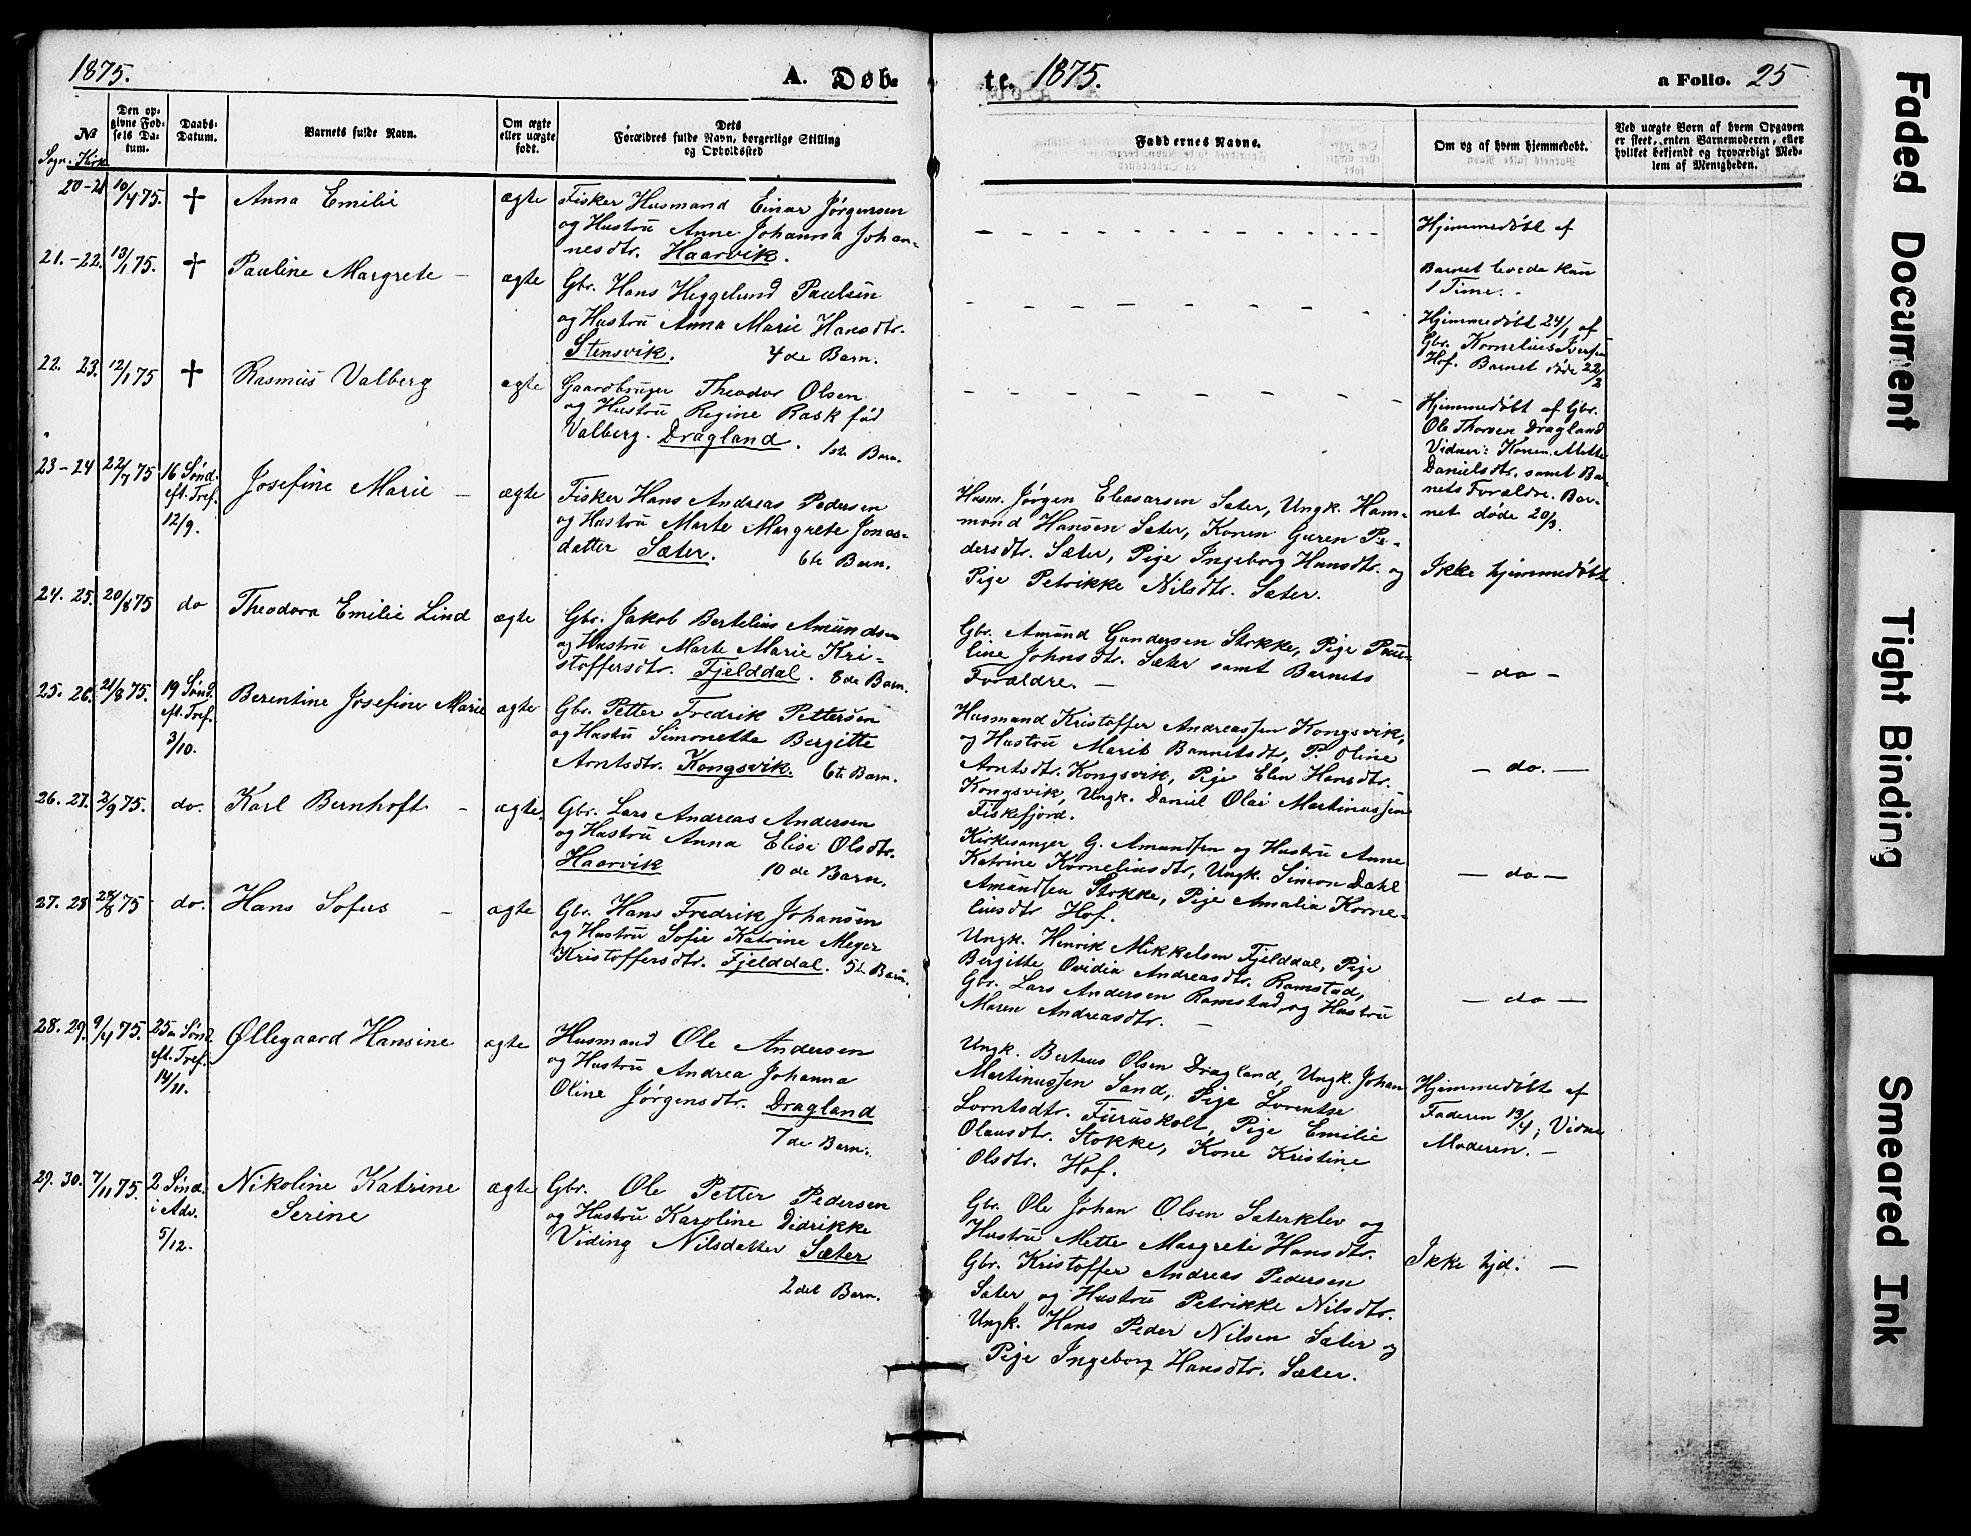 1875. A. Døb-
te. 1875. a Folio. 25
№
Sogn. Kirk.
Den op-
givne Fød-
sels Da-
tum.
Daabs-
Datum.
Barnets fulde Navn.
Om ægte
eller uægte
født.
Dets
Forældres fulde Navn, borgerlige Stilling
og Opholdssted
Faddernes Navne.
Om og af hvem hjemmedøbt.
Ved uægte Børn af hvem Opgaven
er skeet, enten Barnemoderen, eller
hvilket bekjendt og troværdigt Med-
lem af Menigheden.
20-21 10/4 75. † Anna Emilie ægte
Fisker Husmand Einar Jørgensen
og Hustru Anne Johanna Johan-
nesdtr. Haarvik.
Hjemmedøbt af
Barnet levede kun
1 Time.
21.-22. 13/1 75. † Pauline Margrete - ægte
Gbr. Hans Heggelund Paulsen
og Hustru Anna Marie Hansdtr.
Stensvik. 4de Barn.
Hjemmedøbt 24/1 af
Gbr. Kornelius Iversen
Hof. Barnet døde 22/2
22. 23. 12/1 75 † Rasmus Valberg ægte
Gaardbruger Theodor Olsen
og Hustru Regine Rask fød
Valberg. Dragland. 1ste Barn.
Hjemmedøbt af Gbr.
Ole Thorsen Dragland
Vidner: Konen Mette
Danielsdtr. samt Bar-
nets Forældre. Bar-
net døde 20/3.
23-24 22/7 75 16 Sønd.
eft. Tref.
12/9.
Josefine Marie - ægte
Fisker Hans Andreas Pedersen
og Hustru Marte Margrete Jonas-
datter Sæter. 6te Barn.
Husm. Jørgen Eleasarsen Sæter, Ungk. Ham-
mond Hansen Sæter, Konen Guren Pe-
dersdtr. Sæter, Pige Ingeborg Hansdtr. og
Pige Petrikke Nilsdtr. Sæter.
Ikke hjemmedøbt
24. 25. 20/8 75 do Theodora Emilie Lind ægte
Gbr. Jakob Bertelius Amundsen
og Hustru Marte Marie Kri-
stoffersdtr. Fjelddal. 8de Barn.
Gbr. Amund Gundersen Stokke, Pige Pau-
line Johnsdtr. Sæter samt Barnets
Forældre. -
- do -
25. 26. 21/8 75. 19 Sønd.
eft. Tref.
3/10.
Berentine Josefine Marie ægte
Gbr. Petter Fredrik Pettersen
og Hustru Simonette Bergitte
Arntsdtr. Kongsvik. 6te Barn.
Husmand Kristoffer Andreassen Kongsvik,
og Hustru Marit Bannetsdt, P. Oline
Arntsdtr. Kongsvik, Pige Elen Hansdtr.
Kongsvik, Ungk. Daniel Olai Martinussen
Fiskefjord.
- do. -
26. 27. 2/9 75. do. Karl Bernhoft - ægte.
Gbr. Lars Andreas Andersen
og Hustru Anna Elise Olsdtr.
Haarvik 10de Barn.
Kirkesanger G. Amundsen og Hustru Anne
Katrine Korneliusdtr, Ungk. Simon Dahl
Amundsen Stokke, Pige Amalia Korne-
liusdtr Hof.
- do -
27. 28 28/8 75 do. Hans Sofus - ægte
Gbr. Hans Fredrik Johansen
og Hustru Sofie Katrine Meyer
Kristoffersdtr. Fjelddal. 5te Barn.
Ungk. Henrik Mikkelsen Fjelddal, Pige
Bergitte Ovidia Andreasdtr. Ramstad,
Gbr. Lars Andersen Ramstad og Hustru
Maren Andreasdtr. -
- do -
28. 29. 9/4 75. 25de Sønd.
eft. Tref.
14/11.
Øllegaard Hansine ægte
Husmand Ole Andersen
og Hustru Andrea Johanna
Oline Jørgensdtr. Dragland
7de Barn.
Ungk. Berteus Olsen Dragland, Ungk. Johan
Martinussen Sand, Pige Lorentse
Lorntsdtr. Furuskolt, Pige Emilie
Olausdtr. Stokke, Kone Kristine
Olsdtr. Hof.
Hjemmedøbt af
Faderen 13/4; Vidne
Moderen. -
29. 30. 7/11 75. 2 Sønd.
i Adv.
5/12.
Nikoline Katrine
Serine
ægte
Gbr. Ole Petter Pedersen
og Hustru Karoline Didrikke
Viding Nilsdatter Sæter
2det Barn.
Gbr. Ole Johan Olsen Sæterklev og
Hustru Mette Margrete Hansdtr.
Gbr. Kristoffer Andreas Pedersen
Sæter og Hustru Petrikke Nilsdtr.
Ungk. Hans Peder Nilsen Sæter og
Pige Ingeborg Hansdtr. Sæter.
Ikke hjd. -
Faded Document
Tight Binding
Smeared Ink